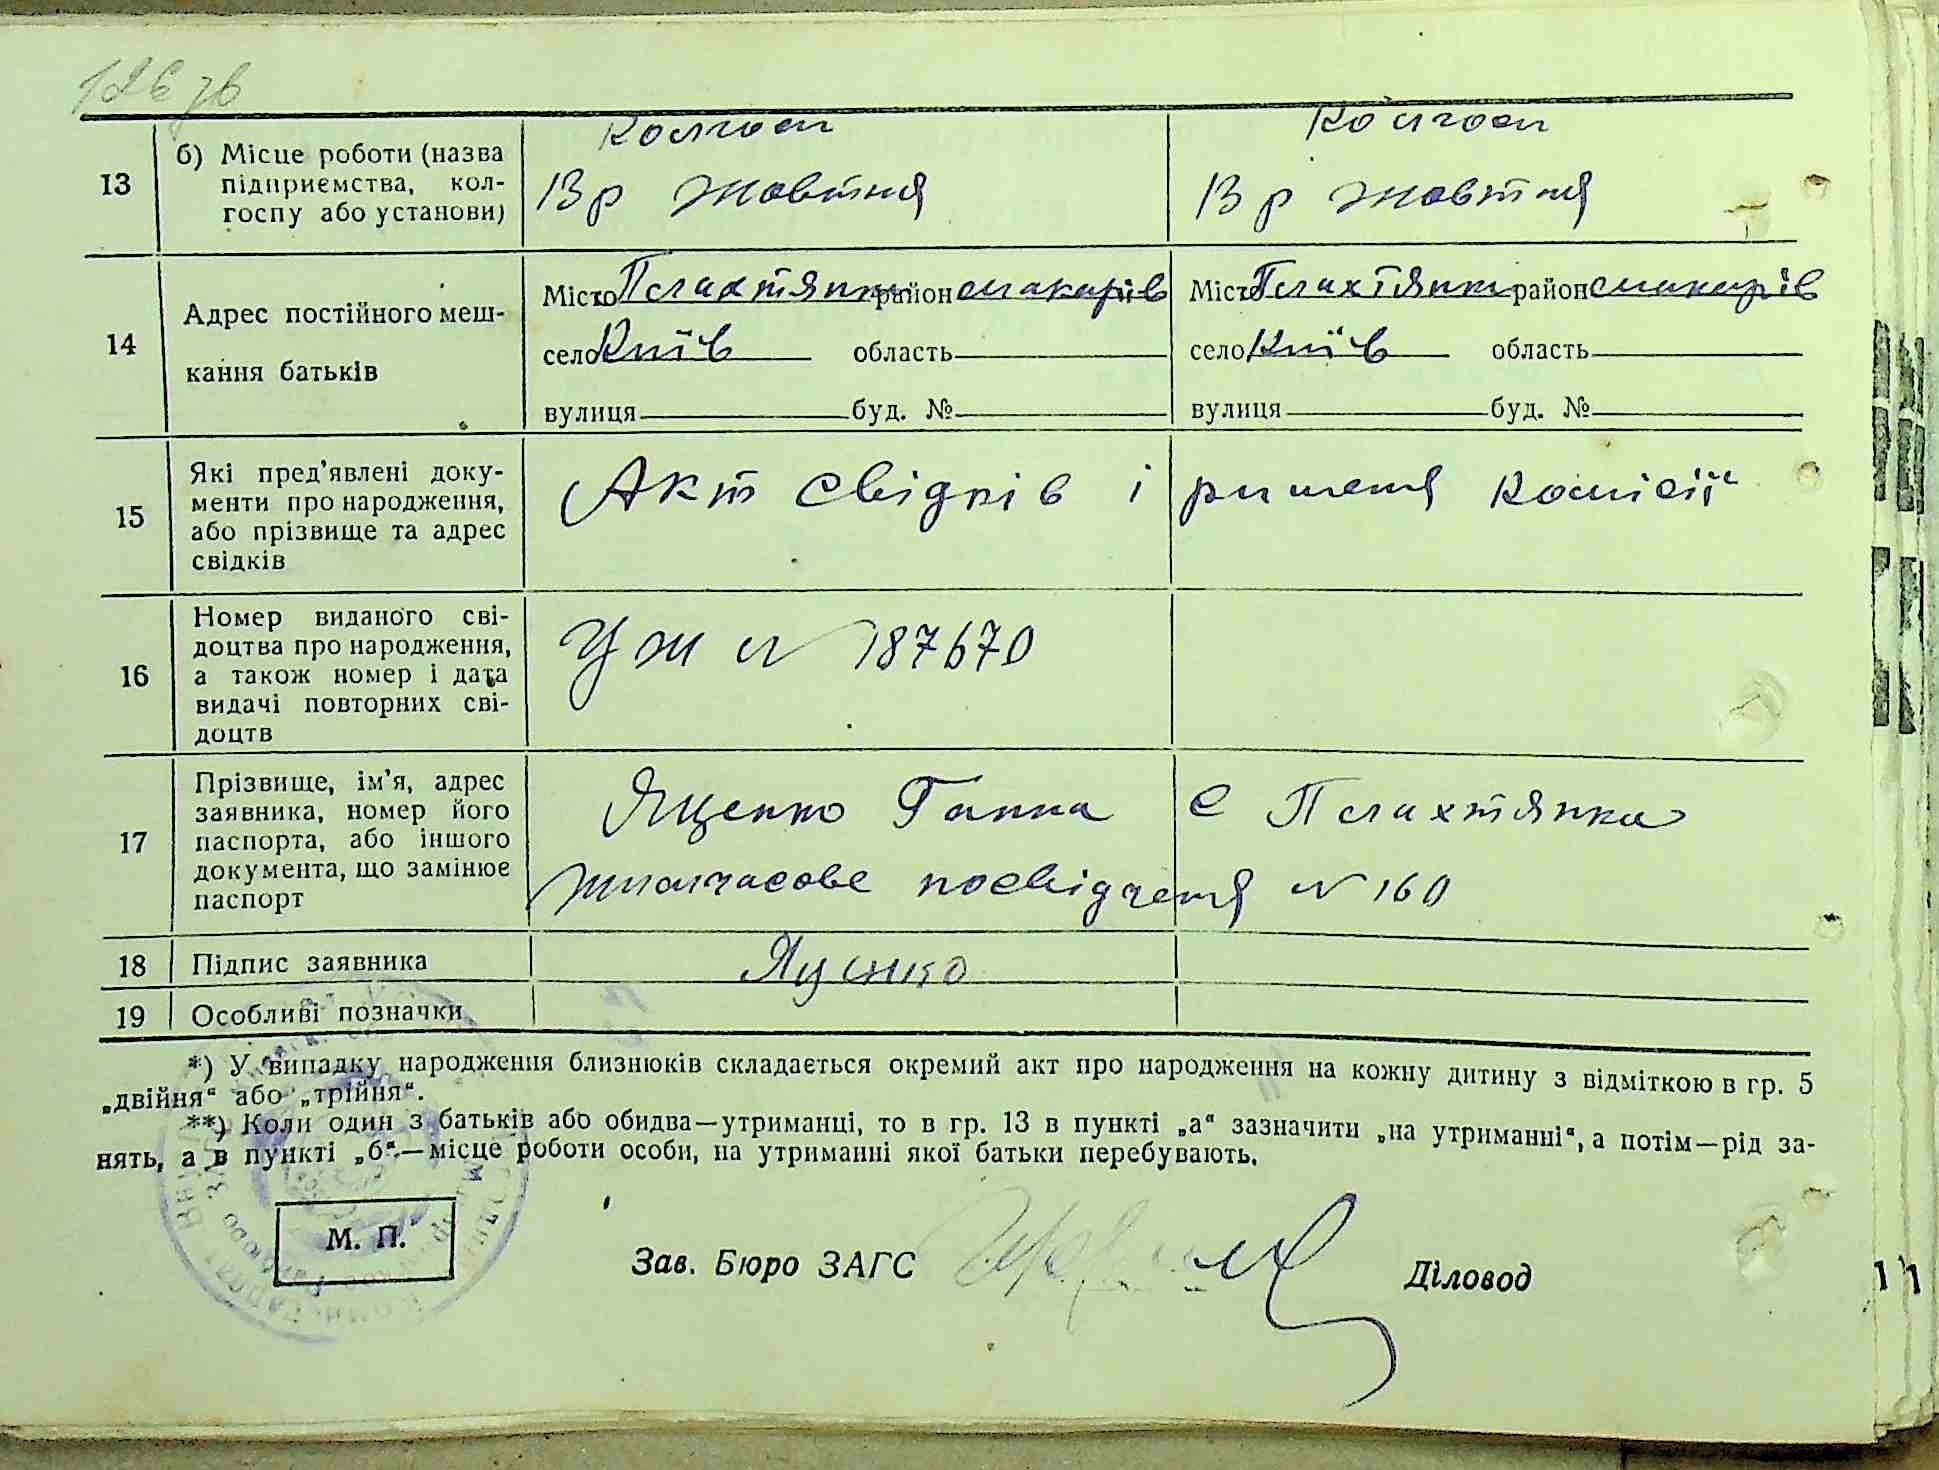 126 зв
13
б) Місце роботи (назва
підприємства, кол-
госпу або установи)
Колгосп
13 р Жовтня
Колгосп
13 р Жовтня
14
Адрес постійного меш-
кання батьків
Місто Плахтянка район Макарів
село Київ область
вулиця буд. №
Місто Плахтянка район Макарів
село Київ область
вулиця буд. №
15
Які пред'явлені доку-
менти про народження,
або прізвище та адрес
свідків
Акт свідків і ришеня комісії
16
Номер виданого сві-
доцтва про народження,
а також номер і дата
видачі повторних сві-
доцтв
УЖ № 187670
17
Прізвище, ім'я, адрес
заявника, номер його
паспорта, або іншого
документа, що замінює
паспорт
Яценко Ганна с Плахтянка
тимчасове посвідченя № 160
18
Підпис заявника
Яценко
19
Особливі позначки
*) У випадку народження близнюків складається окремий акт про народження на кожну дитину з відміткою в гр. 5
„двійня“ або „трійня“.
**) Коли один з батьків або обидва—утриманці, то в гр. 13 в пункті „а“ зазначити „на утриманні“, а потім—рід за-
нять, а в пункті „б“—місце роботи особи, на утриманні якої батьки перебувають.
М. П.
Зав. Бюро ЗАГС
Діловод